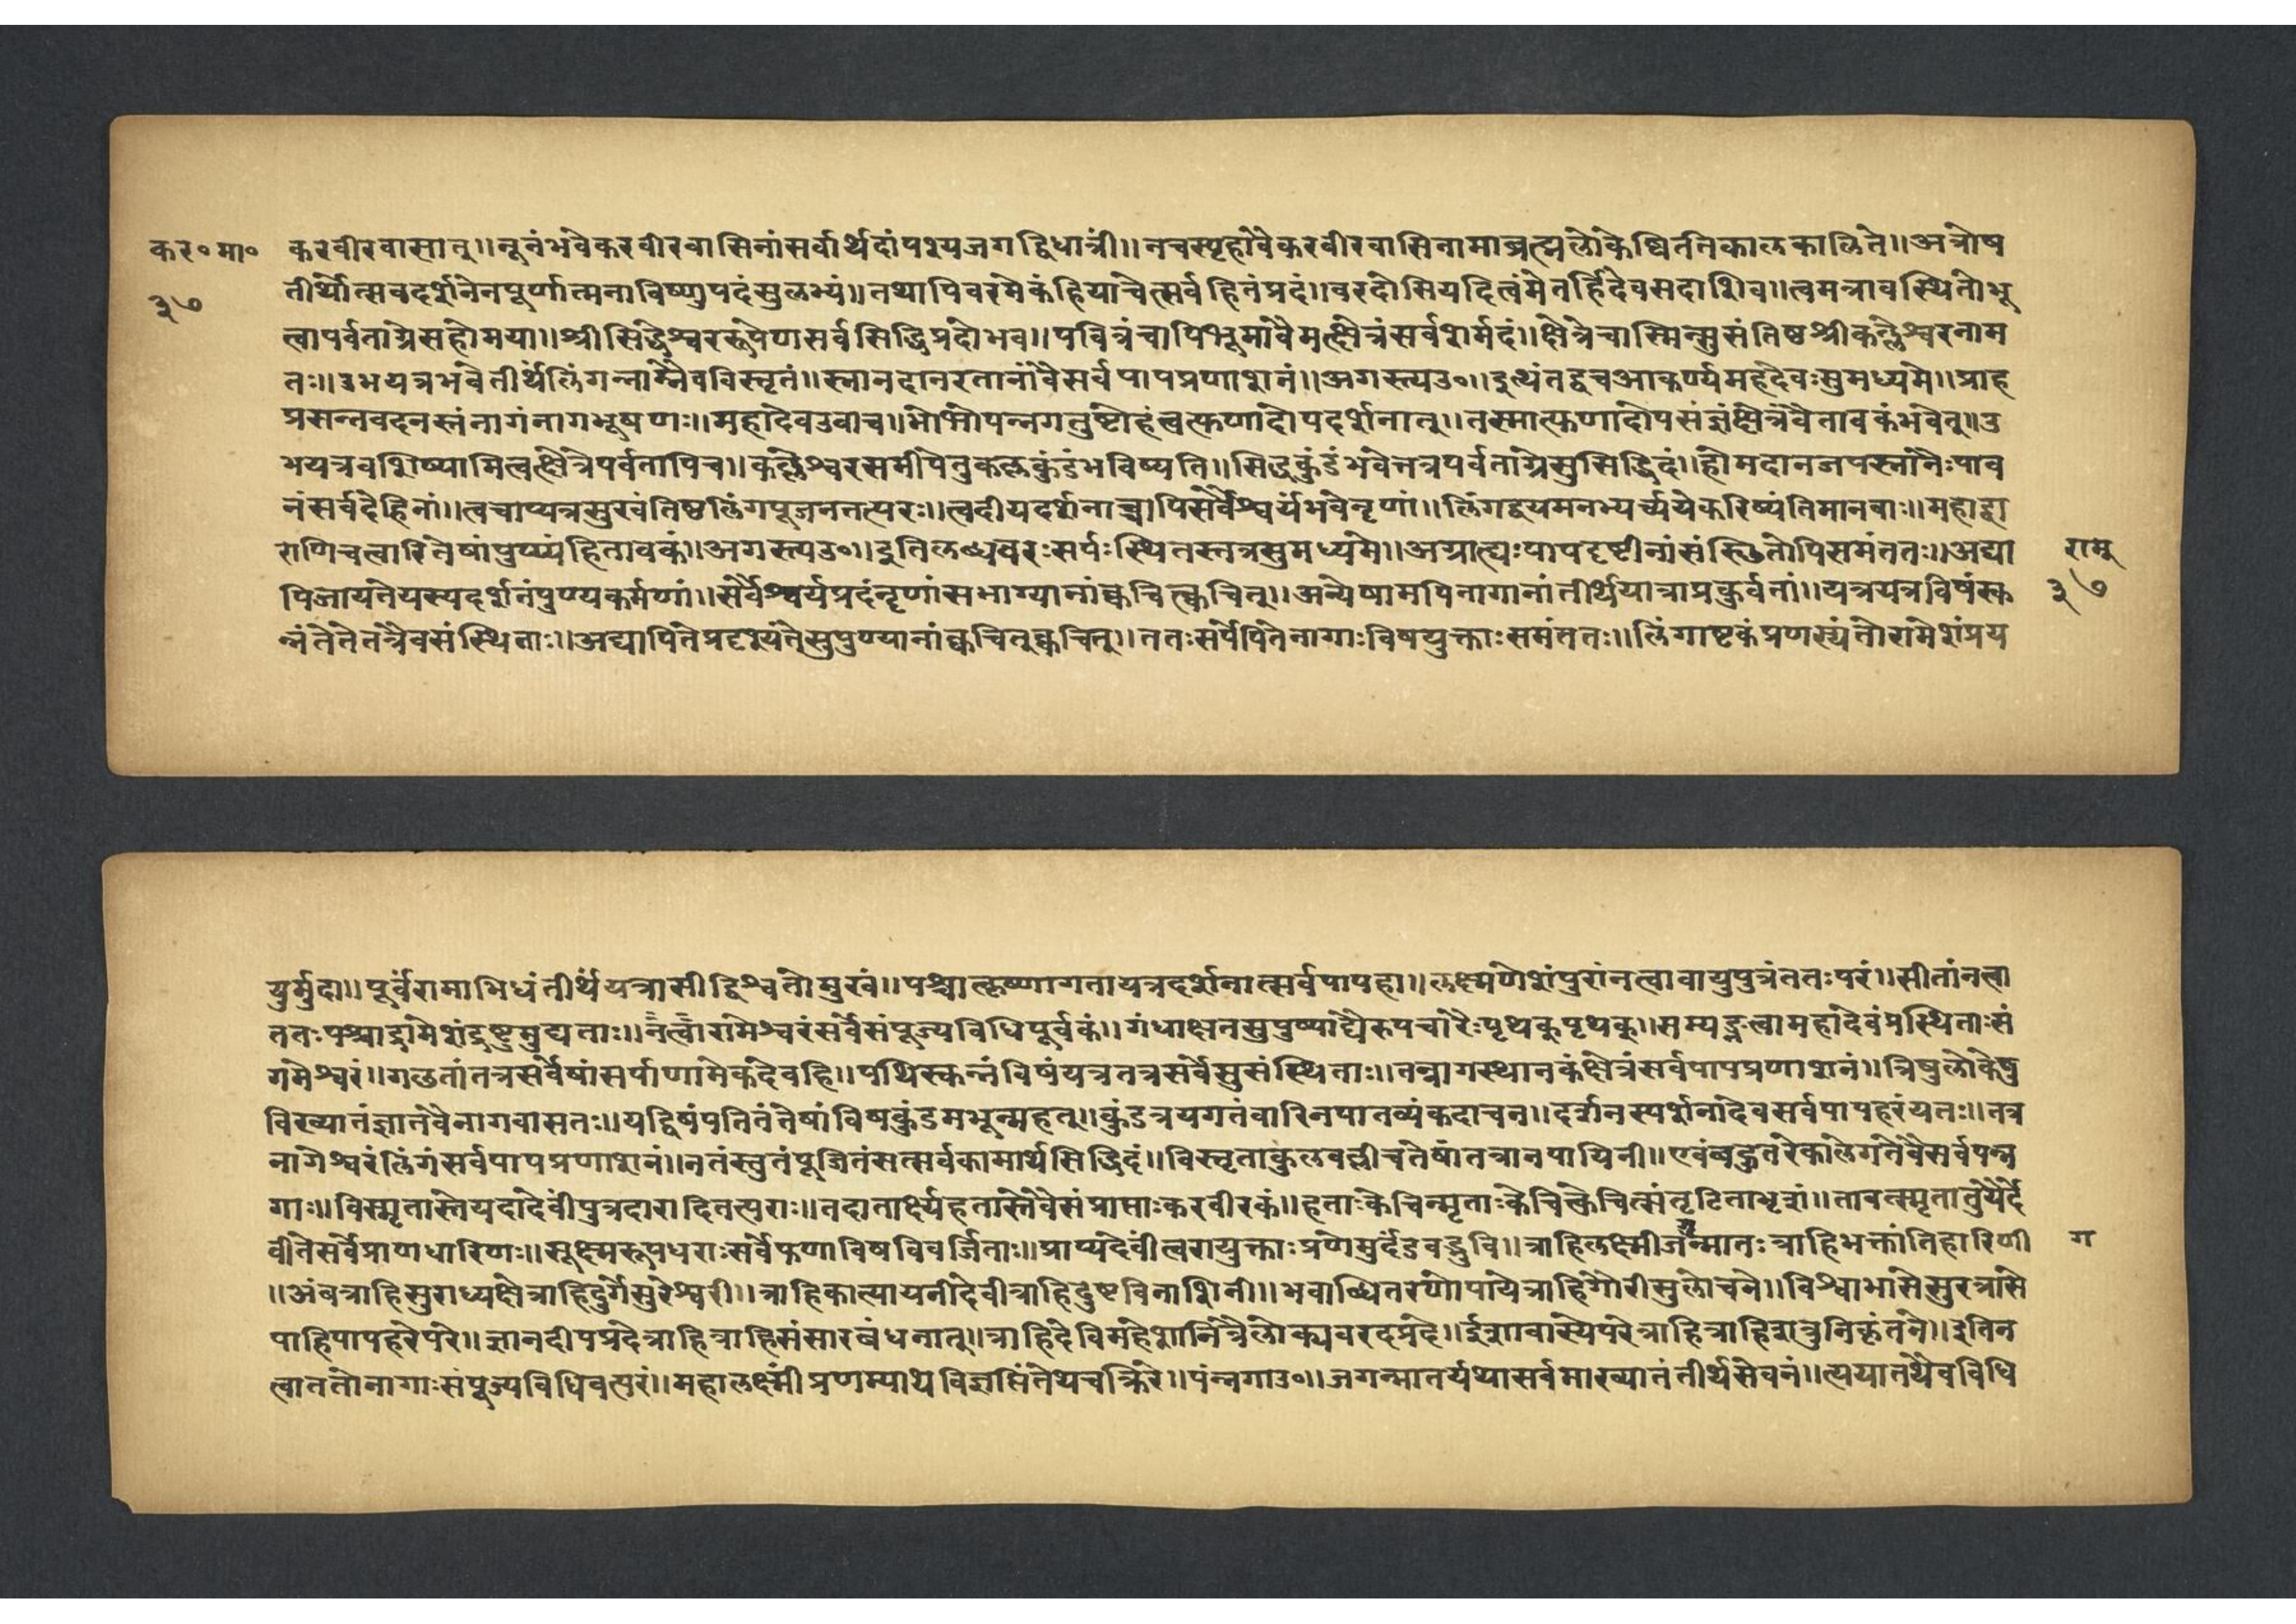 कर॰मा॰ करवीरवासात्॥नूनंभवेकरवीरवासिनांसर्वार्थदांपश्यजगद्विधात्रीं॥नचस्पृहावैकरवीरवासिनामाब्रह्मलोकेष्विततिकालकालिते॥अत्रोष
३७ तीर्थोत्सवदर्शनेनपूर्णात्मनाविष्णुपदंसुलभ्यं॥तथापिवरमेकंहियाचेत्सर्वहितंप्रदं॥वरदोसियदित्वंमेतर्हिदेवसदाशिव॥त्वमत्रावस्थितोभू
त्वापर्वताग्रेसहोमया॥श्रीसिद्धेश्वररूपेणसर्वसिद्धिप्रदोभव॥पवित्रंचापिभूमावैमत्क्षेत्रंसर्वशर्मदं॥क्षेत्रेचास्मिन्सुसंतिष्ठश्रीकल्लेश्वरनाम
तः॥उभयत्रभवेतीर्थंलिंगन्नाम्नैवविस्तृतं॥स्नानदानरतानांवैसर्वपापप्रणाशनं॥अगस्त्यउ॰॥इत्थंतद्वचआकर्ण्यमहदेवःसुमध्यमे॥प्राह
प्रसन्नवदनस्तंनागंनागभूषणः॥महादेवउवाच॥भोभोपन्नगतुष्टोहंत्वत्फणादोपदर्शनात्॥तस्मात्फणादोपसंज्ञंक्षेत्रंवैतावकंभवेत्॥उ
भयत्रवशिष्यामित्वत्क्षेत्रेपर्वतापिच॥कल्लेश्वरसमीपेतुकल्लकुंडंभविष्यति॥सिद्धकुंडंभवेत्तत्रपर्वताग्रेसुसिद्धिदं॥होमदानजपस्नानैःपाव
नंसर्वदेहिनां॥त्वचाप्यत्रसुखंतिष्ठलिंगपूजनतत्परः॥त्वदीयदर्शनाच्चापिसर्वैश्वर्यंभवेनृणां॥लिंगद्वयमनभ्यर्च्ययेकरिष्यंतिमानवाः॥महाद्वा
राणिचत्वारितेषांपुण्यंहितावकं॥अगस्त्यउ॰॥इतिलब्धवरःसर्पःस्थितस्तत्रसुमध्यमे॥अग्राह्यःपापदृष्टीनांसंस्थितोपिसमंततः॥अद्या रामु
पिजायतेयस्यदर्शनंपुण्यकर्मणां॥सर्वैश्वर्यप्रदंनृणांसभाग्यानांक्वचित्क्वचित्॥अन्येषामपिनागानांतीर्थयात्राप्रकुर्वतां॥यत्रयत्रविषंस्क ३७
न्नंतेतेतत्रैवसंस्थिताः॥अद्यापितेप्रदृश्यंतेसुपुण्यानांक्वचित्क्वचित्॥ततःसर्पेपितेनागाःविषयुक्ताःसमंततः॥लिंगाष्टकंप्रणस्यंतोरामेशंप्रय
युर्मुदा॥पूर्वंरामाभिधंतीर्थंयत्रासीद्विश्वतोमुखं॥पश्चात्कृष्णागतायत्रदर्शनात्सर्वपापहा॥लक्ष्मणेशंपुरानत्वावायुपुत्रंततःपरं॥सीतांनत्वा
ततःपश्चाद्रामेशंद्रष्टुमुद्यताः॥नत्वारामेश्वरंसर्वेसंपूज्यविधिपूर्वकं॥गंधाक्षतसुपुष्पाद्यैरुपचारैःपृथक्पृथक्॥सम्यङ्नत्वामहादेवंप्रस्थिताःसं
गमेश्वरं॥गछतांतत्रसर्वेषांसर्पाणामेकदेवहि॥पथिस्कन्नंविषंयत्रतत्रसर्वेसुसंस्थिताः॥तन्नागस्थानकंक्षेत्रंसर्वपापप्रणाशनं॥त्रिषुलोकेषु
विख्यातंज्ञातंवैनागवासतः॥यद्विषंपतितंतेषांविषकुंडमभून्महत्॥कुंडत्रयगतंवारिनपातव्यंकदाचन॥दर्शनस्पर्शनादेवसर्वपापहरंयतः॥तत्र
नागेश्वरंलिंगंसर्वपापप्रणाशनं॥नतंस्तुतंपूजितंसत्सर्वकामार्थसिद्धिदं॥विस्तृताकुलवल्लीचतेषांतत्रानपायिनी॥एवंबहुतरेकालेगतेवैसर्वपन्न
गाः॥विस्मृतास्तेयदादेवींपुत्रदारादितत्पराः॥तदातार्क्ष्यहतास्तेवैसंप्राप्ताःकरवीरकं॥हताःकेचिन्मृताःकेचित्केचित्संतृटिताभृशं॥तावत्स्मृतातुयैर्दे
वीतेसर्वेप्राणधारिणः॥सूक्ष्मरूपधराःसर्वेफणाविषविवर्जिताः॥प्राप्यदेवींत्वरायुक्ताःप्रणेमुर्दंडवद्भुवि॥त्राहिलक्ष्मीर्जगन्मातःत्राहिभक्तार्तिहारिणी ग
॥अंबत्राहिसुराध्यक्षेत्राहिदुर्गेसुरेश्वरी॥त्राहिकात्यायनीदेवीत्राहिदुष्टविनाशिनी॥भवाब्धितरणोपायेत्राहिगौरीसुलोचने॥विश्वाभासेसुरत्रासे
पाहिपापहरेपरे॥ज्ञानदीपप्रदेत्राहित्राहिसंसारबंधनात्॥त्राहिदेविमहेशानित्रैलोक्यवरदप्रदे॥ईशावास्येपरेत्राहित्राहिशत्रुनिकृंतने॥इतिन
त्वाततोनागाःसंपूज्यविधिवत्परं॥महालक्ष्मींप्रणम्याथविज्ञप्तिंतेथचक्रिरे॥पंन्नगाउ॰॥जगन्मातर्यथासर्वमाख्यातंतीर्थसेवनं॥त्पयातथैवविधि